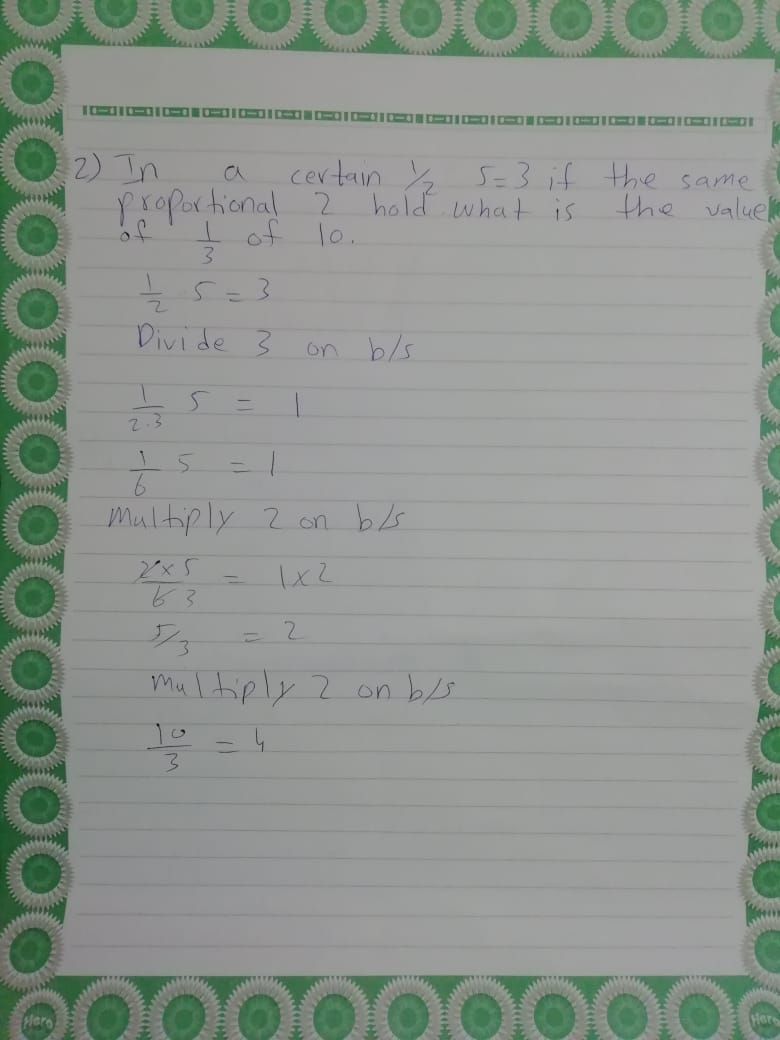 2) In a certain ½ 5=3 if the same
proportional 2 hold what is the value
of 1/3 of 10.
1/2 5 = 3
Divide 3 on b/s
1/2.3 5 = 1
1/6 5 = 1
Multiply 2 on b/s
2x5/6 3 = 1x2
5/3 = 2
Multiply 2 on b/s
10/3 = 4
Hero